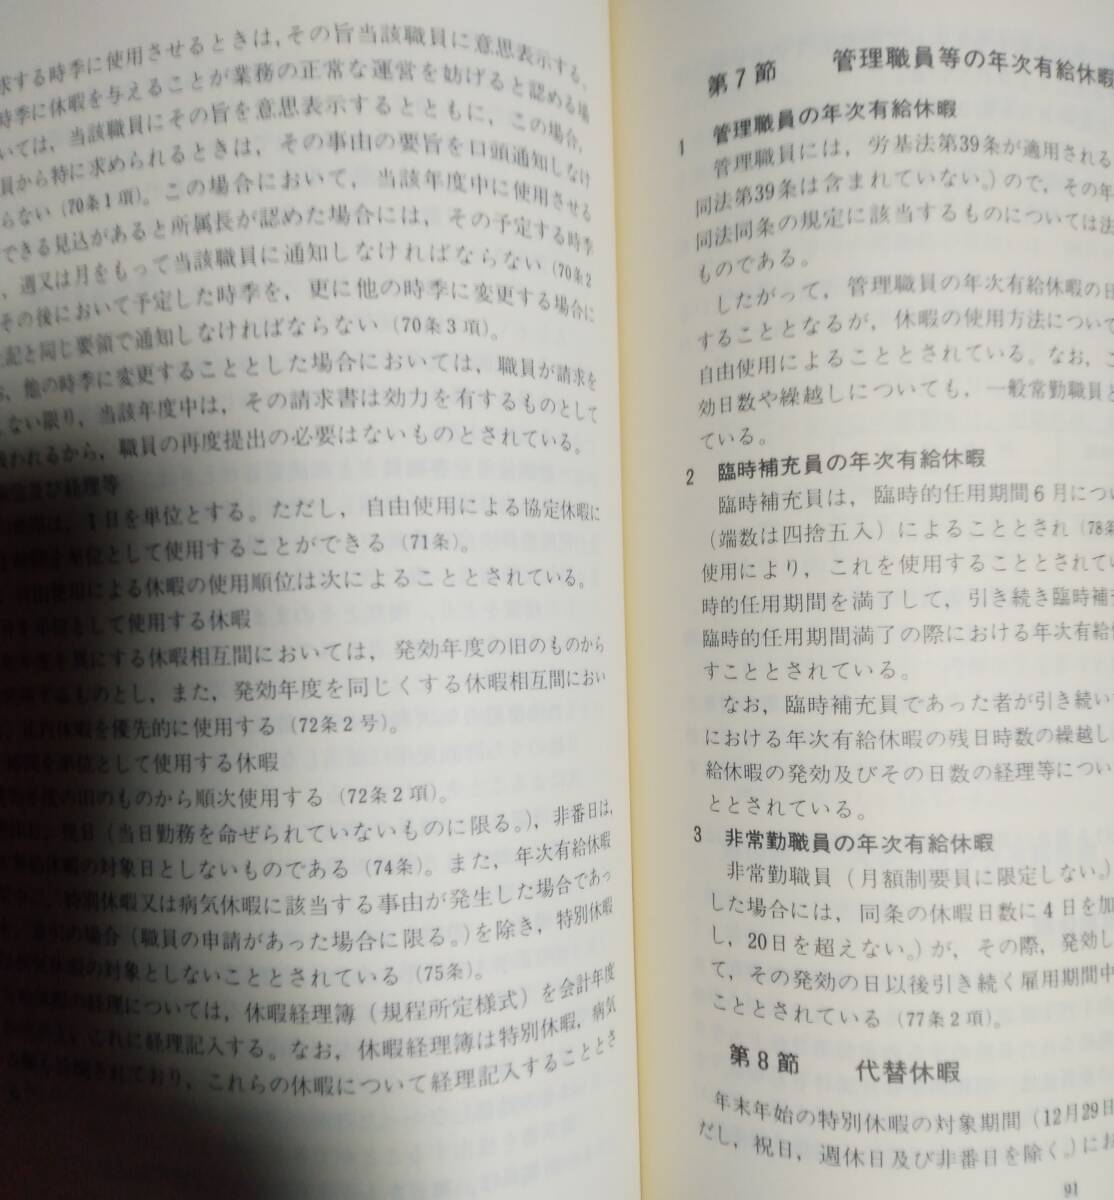 求する時季に使用させるときは，その旨当該職員に意思表示する。
時季に休暇を与えることが業務の正常な運営を妨げると認める場
いては，当該職員にその旨を意思表示するとともに，この場合，
員から特に求められるときは，その事由の要旨を口頭通知しなけ
らない（70条1項）。この場合において，当該年度中に使用させる
できる見込があると所属長が認めた場合には，その予定する時季
，週又は月をもって当該職員に通知しなければならない（70条2
その後において予定した時季を，更に他の時季に変更する場合に
記と同じ要領で通知しなければならない（70条3項）。
，他の時季に変更することとした場合においては，職員が請求を
ない限り，当該年度中は，その請求書は効力を有するものとして
われるから，職員の再度提出の必要はないものとされている。
及び経理等
使用は，1日を単位とする。ただし，自由使用による協定休暇に
単位として使用することができる（71条）。
自由使用による休暇の使用順位は次によることとされている。
単位として使用する休暇
異にする休暇相互間においては，発効年度の旧のものから
するものとし，また，発効年度を同じくする休暇相互間におい
休暇を優先的に使用する（72条2号）。
時間を単位として使用する休暇
の旧のものから順次使用する（72条2項）。
祝日（当日勤務を命ぜられていないものに限る。），非番日は，
休暇の対象日としないものである（74条）。また，年次有給休暇
特別休暇又は病気休暇に該当する事由が発生した場合であっ
の場合（職員の申請があった場合に限る。）を除き，特別休暇
休暇の対象としないこととされている（75条）。
の経理については，休暇経理簿（規程所定様式）を会計年度
これに経理記入する。なお，休暇経理簿は特別休暇，病気
されており，これらの休暇について経理記入することとさ
第7節 管理職員等の年次有給休暇
1 管理職員の年次有給休暇
管理職員には，労基法第39条が適用される
同法第39条は含まれていない。）ので，その年
同法同条の規定に該当するものについては法
ものである。
したがって，管理職員の年次有給休暇の日
することとなるが，休暇の使用方法について
自由使用によることとされている。なお，こ
効日数や繰越しについても，一般常勤職員と
ている。
2 臨時補充員の年次有給休暇
臨時補充員は，臨時的任用期間6月につい
（端数は四捨五入）によることとされ（78条
使用により，これを使用することとされてい
時的任用期間を満了して，引き続き臨時補充
臨時的任用期間満了の際における年次有給休
すこととされている。
なお，臨時補充員であった者が引き続い
における年次有給休暇の残日時数の繰越し
給休暇の発効及びその日数の経理等につい
ととされている。
3 非常勤職員の年次有給休暇
非常勤職員（月額制要員に限定しない。）
した場合には，同条の休暇日数に4日を加
し，20日を超えない。）が，その際，発効し
て，その発効の日以後引き続く雇用期間中
こととされている（77条2項）。
第8節 代替休暇
年末年始の特別休暇の対象期間（12月29日
だし，祝日，週休日及び非番日を除く。）にお
91